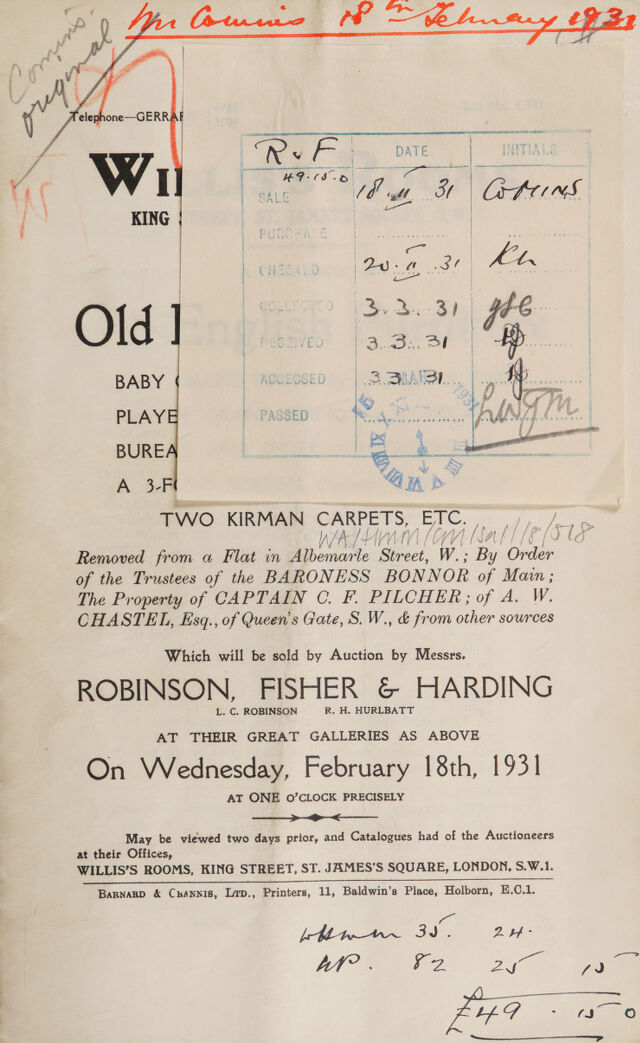 Mr Comins 18th February 1931
Comins'
original
Telephone—GERRAR
WIL
KING S
Old
BABY
PLAYE
BUREA
A 3-FO
R & F DATE INITIALS
49.15.0
SALE 18. II 31 COMINS
PURCHASE
CHECKED 20. II. 31 KL
COLLECTED 3. 3. 31
RECEIVED 3. 3. 31
ACCESSED 3 3 31
PASSED
English
TWO KIRMAN CARPETS, ETC.
WA/HMM/CM/Sal/18/518
Removed from a Flat in Albemarle Street, W.; By Order
of the Trustees of the BARONESS BONNOR of Main;
The Property of CAPTAIN C. F. PILCHER; of A. W.
CHASTEL, Esq., of Queen's Gate, S. W., & from other sources
Which will be sold by Auction by Messrs.
ROBINSON, FISHER & HARDING
L. C. ROBINSON R. H. HURLBATT
AT THEIR GREAT GALLERIES AS ABOVE
On Wednesday, February 18th, 1931
AT ONE O'CLOCK PRECISELY
May be viewed two days prior, and Catalogues had of the Auctioneers
at their Offices,
WILLIS'S ROOMS, KING STREET, ST. JAMES'S SQUARE, LONDON, S.W.1.
BARNARD & CRANNIS, LTD., Printers, 11, Baldwin's Place, Holborn, E.C.1.
35. 24.
82 25 15
£49 . 15 0